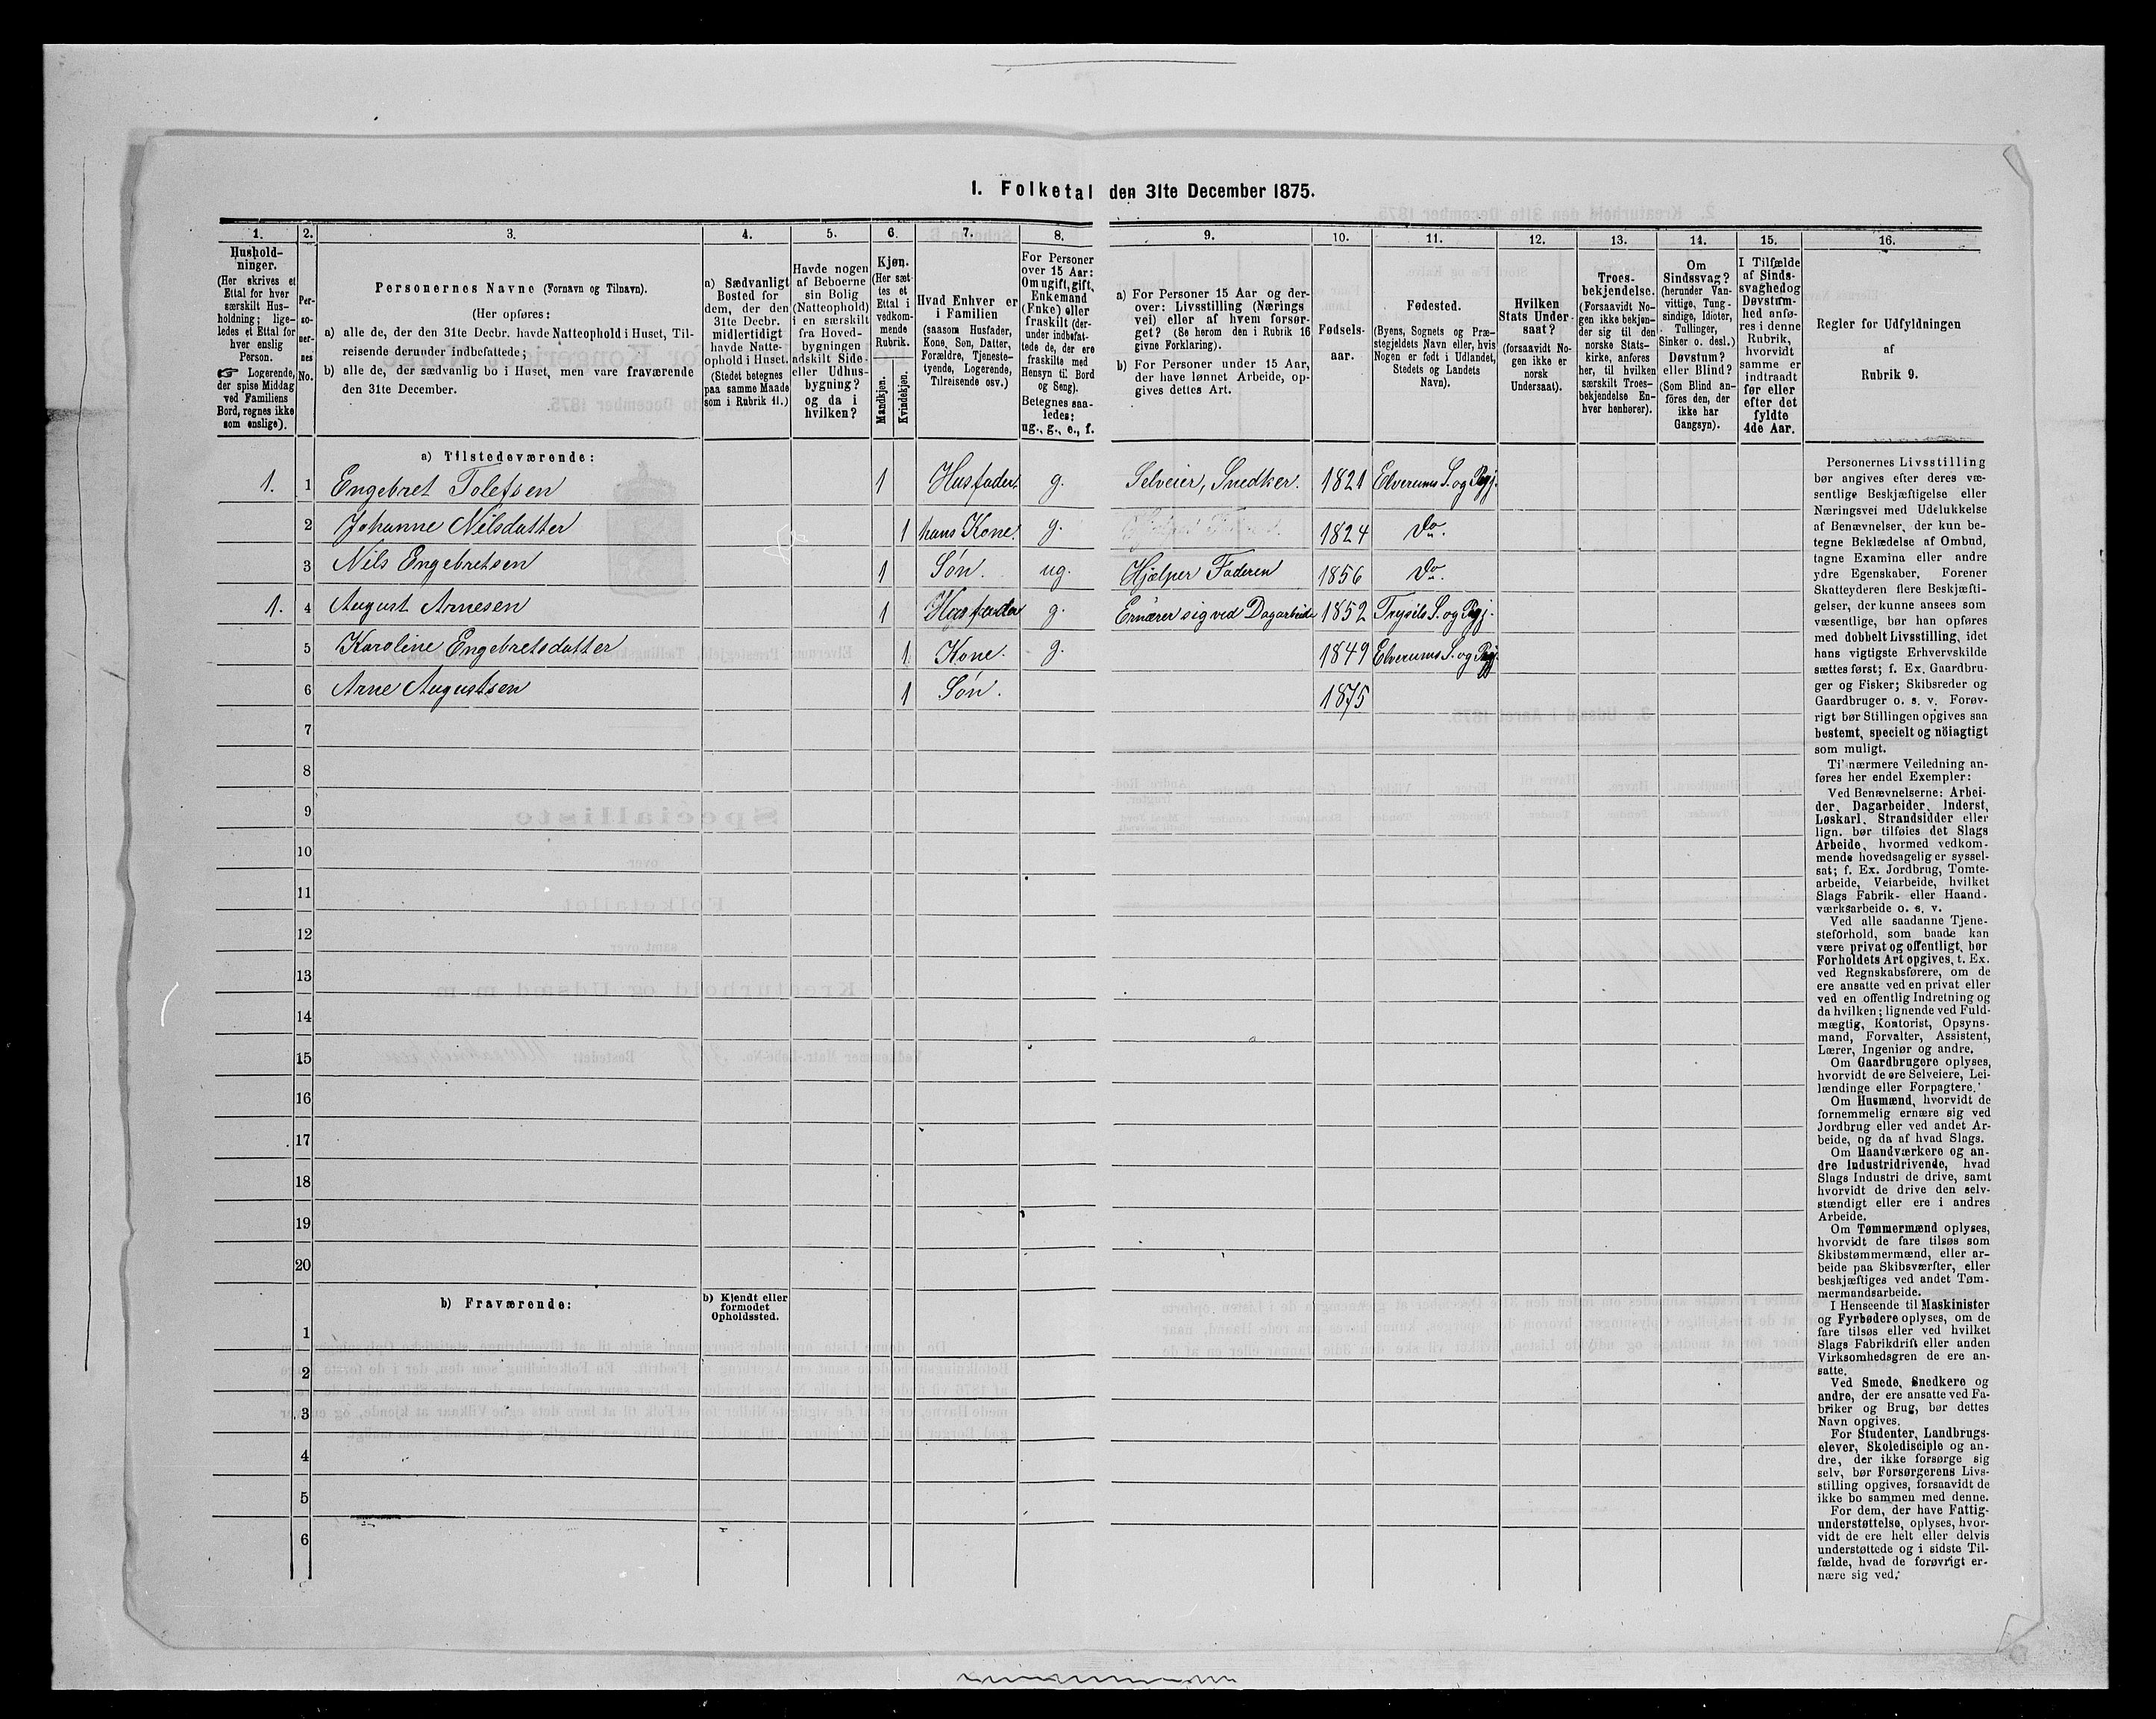 I. Folketal den 31te December 1875.
1. 2. 3. 4. 5. 6. 7. 8. 9. 10. 11. 12. 13. 14. 15. 16.
Hushold-
ninger.
(Her skrives et
Ettal for hver
særskilt Hus-
holdning; lige-
ledes et Ettal for
hver enslig
Person.
☞ Logerende,
der spise Middag
ved Familiens
Bord, regnes ikke
som enslige).
Per-
so-
ner-
nes
No.
Personernes Navne (Fornavn og Tilnavn).
(Her opføres:
a) alle de, der den 31te Decbr. havde Natteophold i Huset, Til-
reisende derunder indbefattede;
b) alle de, der sædvanlig bo i Huset, men vare fraværende
den 31te December.
a) Sædvanligt
Bosted for
dem, der den
31te Decbr.
midlertidigt
havde Natte-
ophold i Huset.
(Stedet betegnes
paa samme Maade
som i Rubrik 11.)
Havde nogen
af Beboerne
sin Bolig
(Natteophold)
i en særskilt
fra Hoved-
bygningen
adskilt Side-
eller Udhus-
bygning?
og da i
hvilken?
Kjøn.
(Her sæt-
tes et
Ettal i
vedkom-
mende
Rubrik.
Mandkjøn.
Kvindekjøn.
Hvad Enhver er
i Familien
(saasom Husfader,
Kone, Søn, Datter,
Forældre, Tjeneste-
tyende, Logerende,
Tilreisende osv.)
For Personer
over 15 Aar:
Om ugift, gift,
Enkemand
(Enke) eller
fraskilt (der-
under indbefat-
tede de, der ere
fraskilte med
Hensyn til Bord
og Seng).
Betegnes saa-
ledes:
ug., g., e., f.
a) For Personer 15 Aar og der-
over: Livsstilling (Nærings
vei) eller af hvem forsør-
get? (Se herom den i Rubrik 16
givne Forklaring).
b) For Personer under 15 Aar,
der have lønnet Arbeide, op-
gives dettes Art.
Fødsels-
aar.
Fødested.
(Byens, Sognets og Præ-
stegjeldets Navn eller, hvis
Nogen er født i Udlandet,
Stedets og Landets
Navn).
Hvilken
Stats Under-
saat?
(forsaavidt No-
gen ikke er
norsk
Undersaat).
Troes-
bekjendelse.
(Forsaavidt No-
gen ikke bekjen-
der sig til den
norske Stats-
kirke, anføres
her, til hvilken
særskilt Troes-
bekjendelse En-
hver henhører).
Om
Sindssvag?
(herunder Van-
vittige, Tung-
sindige, Idioter,
Tullinger,
Sinker o. desl.)
Døvstum?
eller Blind?
(Som Blind an-
føres den, der
ikke har
Gangsyn).
I Tilfælde
af Sinds-
svaghed og
Døvstum-
hed anfø-
res i denne
Rubrik,
hvorvidt
samme er
indtraadt
før eller
efter det
fyldte
4de Aar.
Regler for Udfyldningen
af
Rubrik 9.
a) Tilstedeværende:
1. 1 Engebret Tolefsen 1 Husfader g. Selveier, Snedker. 1821 Elverums S. og Pgj.
2 Johanne Nilsdatter 1 hans Kone. g. 1824 Do.
3 Nils Engebretsen 1 Søn. ug. Hjælper Faderen 1856 Do.
1. 4 August Arnesen 1 Husfader g. Ernærer sig ved Dagarbeide 1852 Trysils S. og Pgj.
5 Karoline Engebretsdatter 1 Kone. g. 1849 Elverums S. og Pgj.
6 Arne Augustsen 1 Søn. 1875
7
8
9
10
11
12
13
14
15
16
17
18
19
20
b) Fraværende:
b) Kjendt eller
formodet
Opholdssted.
1
2
3
4
5
6
Personernes Livsstilling
bør angives efter deres væ-
sentlige Beskjæftigelse eller
Næringsvei med Udelukkelse
af Benævnelser, der kun be-
tegne Beklædelse af Ombud,
tagne Examina eller andre
ydre Egenskaber. Forener
Skatteyderen flere Beskjæfti-
gelser, der kunne ansees som
væsentlige, bør han opføres
med dobbelt Livsstilling, idet
hans vigtigste Erhvervskilde
sættes først; f. Ex. Gaardbru-
ger og Fisker; Skibsreder og
Gaardbruger o. s. v. Forøv-
rigt bør Stillingen opgives saa
bestemt, specielt og nöiagtigt
som muligt.
Til nærmere Veiledning an-
føres her endel Exempler:
Ved Benævnelserne: Arbei-
der, Dagarbeider, Inderst,
Løskarl, Strandsidder eller
lign. bør tilføies det Slags
Arbeide, hvormed vedkom-
mende hovedsagelig er syssel-
sat; f. Ex. Jordbrug, Tomte-
arbeide, Veiarbeide, hvilket
Slags Fabrik- eller Haand-
værksarbeide o. s. v.
Ved alle saadanne Tjene-
steforhold, som baade kan
være privat og offentligt, bør
Forholdets Art opgives, t. Ex.
ved Regnskabsførere, om de
ere ansatte ved en privat eller
ved en offentlig Indretning og
da hvilken; lignende ved Fuld-
mægtig, Kontorist, Opsyns-
mand, Forvalter, Assistent,
Lærer, Ingeniør og andre.
Om Gaardbrugere oplyses,
hvorvidt de ere Selveiere, Lei-
lændinge eller Forpagtere.
Om Husmænd, hvorvidt de
fornemmelig ernære sig ved
Jordbrug eller ved andet Ar-
beide, og da af hvad Slags.
Om Haandværkere og an-
dre Industridrivende, hvad
Slags Industri de drive, samt
hvorvidt de drive den selv-
stændigt eller ere i andres
Arbeide.
Om Tømmermænd oplyses,
hvorvidt de fare tilsøs som
Skibstømmermænd, eller ar-
beide paa Skibsværfter, eller
beskjæftiges ved andet Tøm-
mermandsarbeide.
I Henseende til Maskinister
og Fyrbødere oplyses, om de
fare tilsøs eller ved hvilket
Slags Fabrikdrift eller anden
Virksomhedsgren de ere an-
satte.
Ved Smede, Snedkere og
andre, der ere ansatte ved Fa-
briker og Brug, bør dettes
Navn opgives.
For Studenter, Landbrugs-
elever, Skoledisciple og an-
dre, der ikke forsørge sig
selv, bør Forsørgerens Livs-
stilling opgives, forsaavidt de
ikke bo sammen med denne.
For dem, der have Fattig-
understøttelse, oplyses, hvor-
vidt de ere helt eller delvis
understøttede og i sidste Til-
fælde, hvad de forøvrigt er-
nære sig ved.